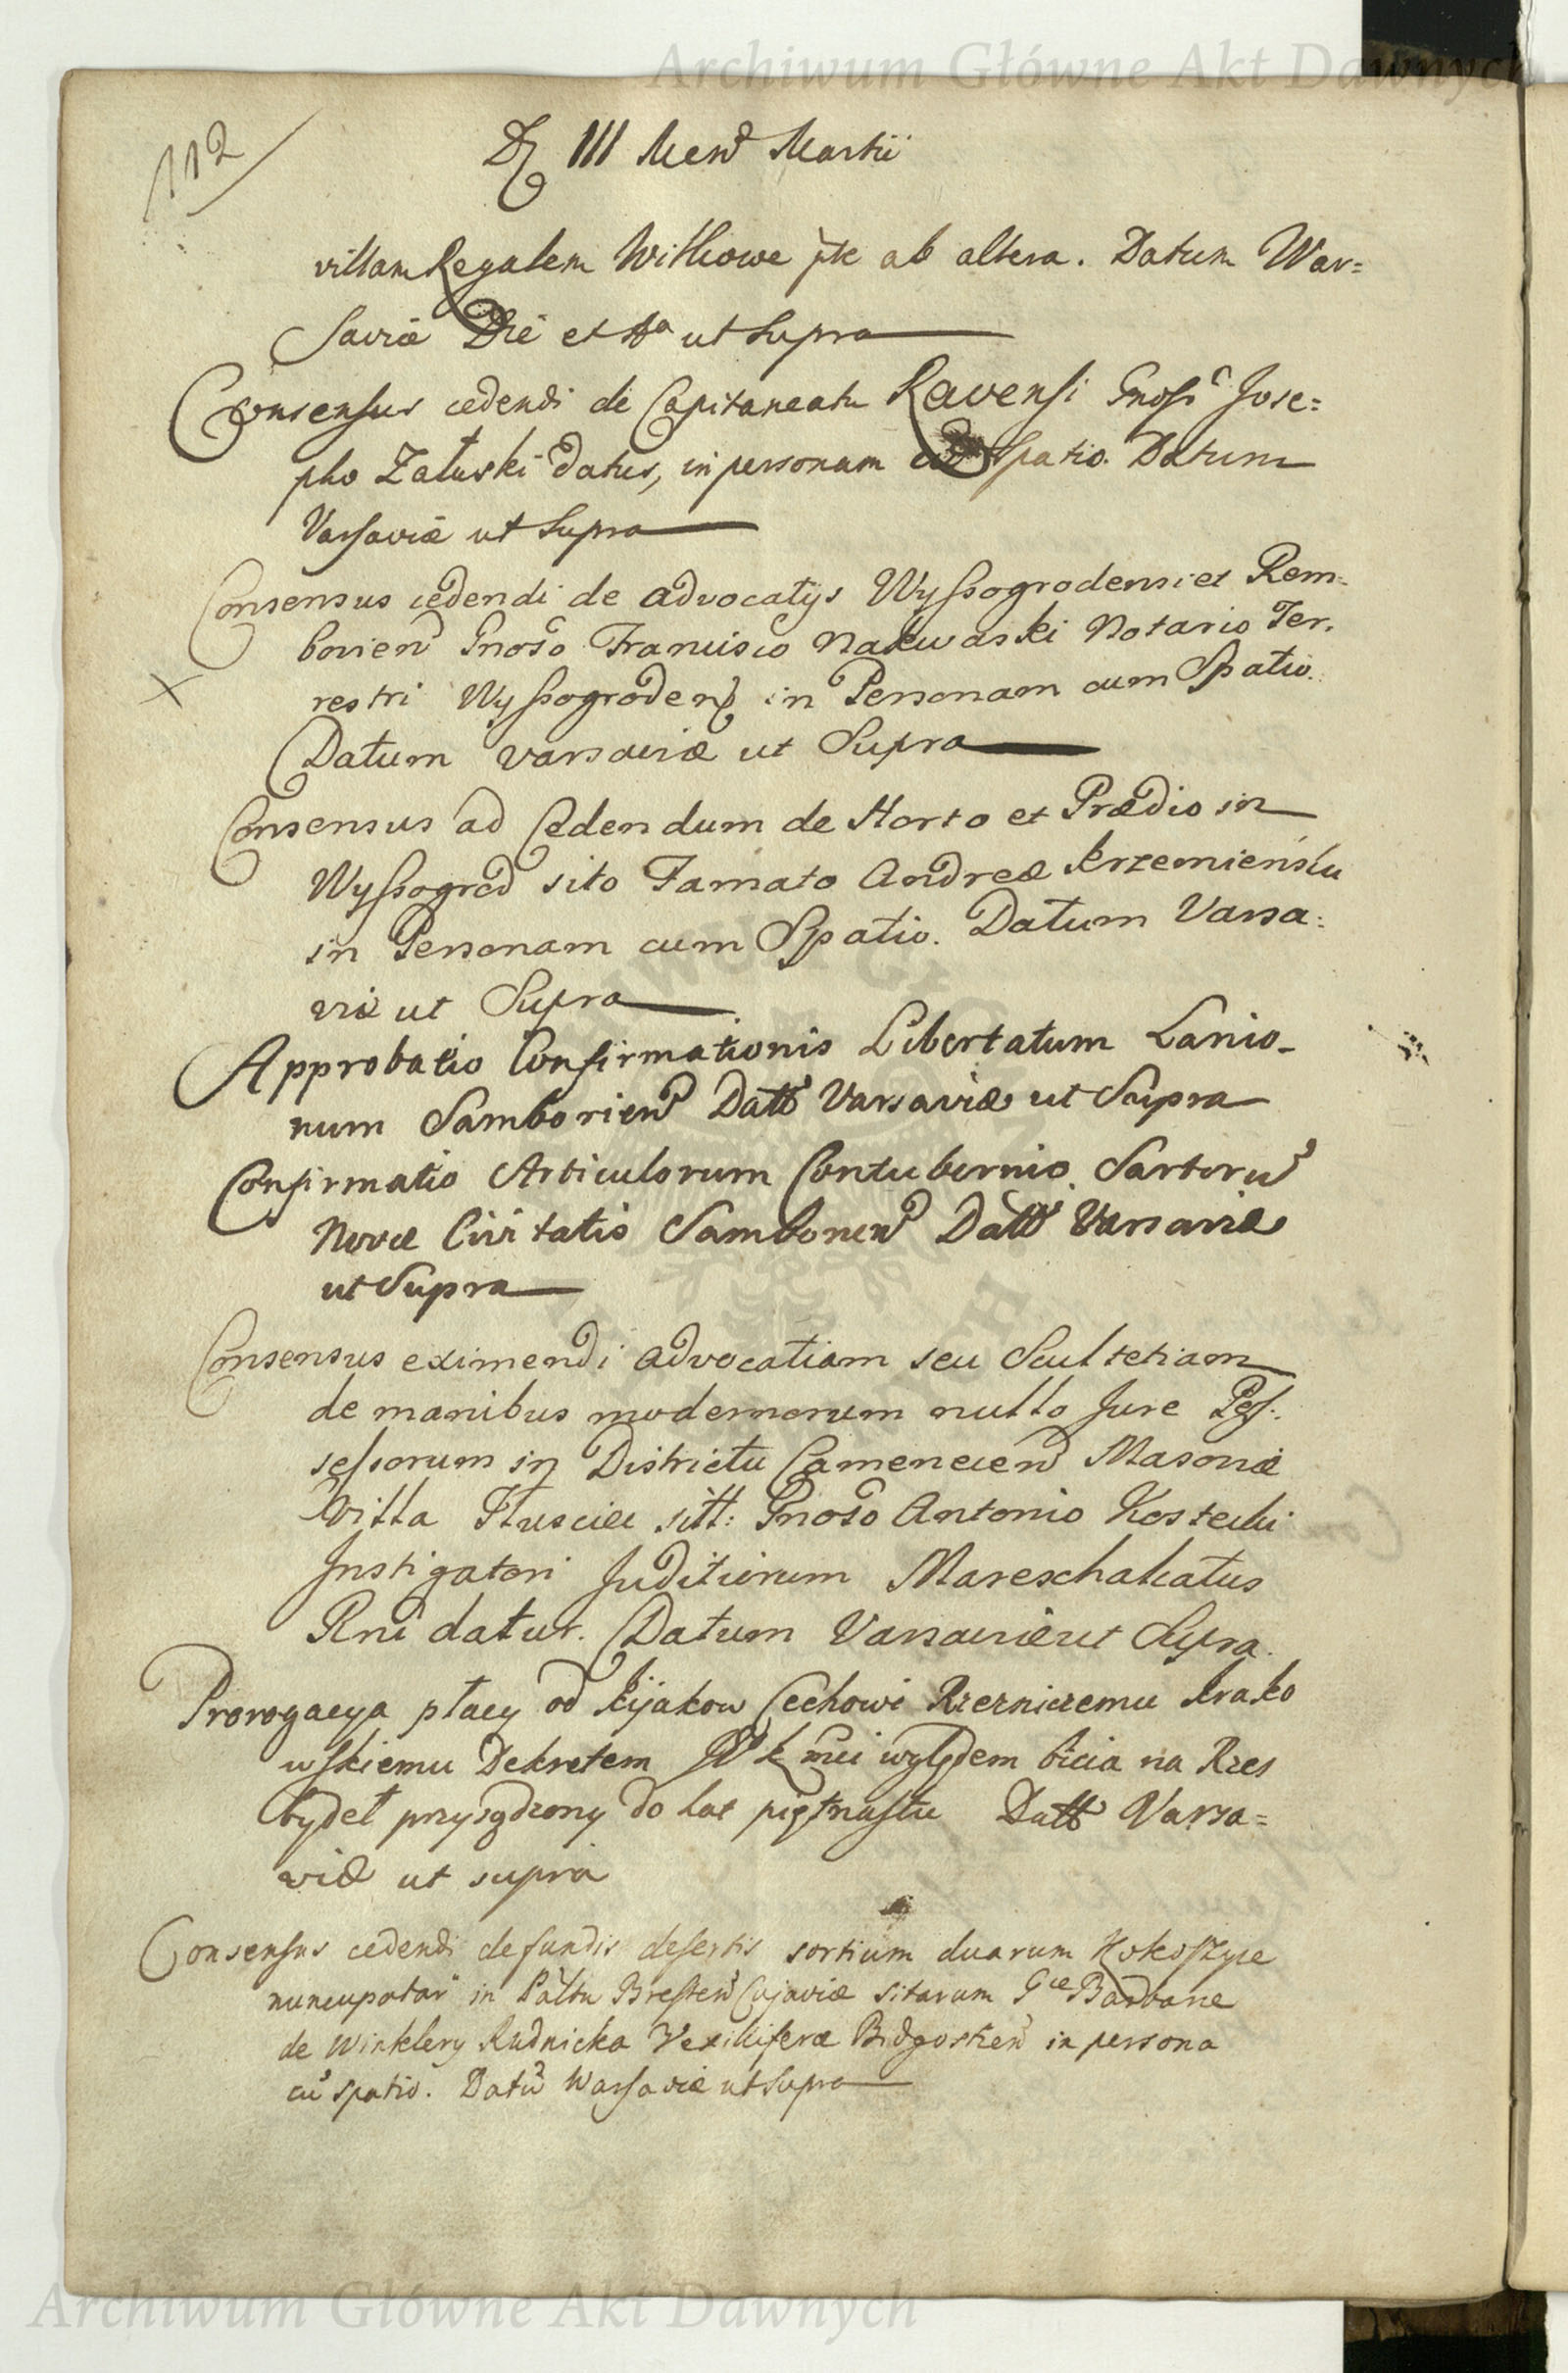 Archiwum Główne Akt Dawnych
112
D III Mens Martii
villam Regalem Witkowe pte ab altera. Datum War=
saviæ Die et Ao ut Supra
Consensus cedendi de Capitaneatu Ravensi Gnoso Jose=
pho Załuski datus, in personam cum Spatio. Datum
Varsaviæ ut Supra
Consensus cedendi de advocatijs Wyssogrodensi et Rem-
bovien Gnoso Francisco Nakwaski Notario Ter,
restri Wyssogroden in Personam cum Spatio.
Datum Varsaviæ ut Supra
Consensus ad Cedendum de Horto et Prædio in
Wyssogrod sito Famato Andreæ Krzemiensku
in Personam cum Spatio. Datum Varsa:
viæ ut Supra
Approbatio Confirmationis Libertatum Lanio-
num Samborien Datt Varsaviæ ut Supra
Confirmatio Articulorum Contubernio. Sartorum
Novæ Civitatis Samborien Datt Varsaviæ
ut Supra
Consensus eximendi advocatiam seu Scultetiam
de manibus modernorum nullo Jure Pos:
sessorum in Districtu Camenecen
Villa sitt: Gnoso Antonio Kostecki
Instigatori Juditiorum Mareschalcatus
Rni datur. Datum Varsaviæ ut Supra.
Prorogacya płacy od kijakow Cechowi Rzezniczemu Krako
wskiemu Dekretem względem bicia na Rzez
bydeł przysądzony do lat piętnastu Datt Varsa=
viæ ut supra
Consensus cedendi de fundis desertis sortium duarum Kokoszyce
nuncupatar in Paltu Bresten Cujaviæ sitarum Gcæ Barbaræ
de Winklery Rudnicka Vexilliferæ Bidgostien in persona
cu spatio. Datu Warsaviæ ut Supra
Archiwum Główne Akt Dawnych